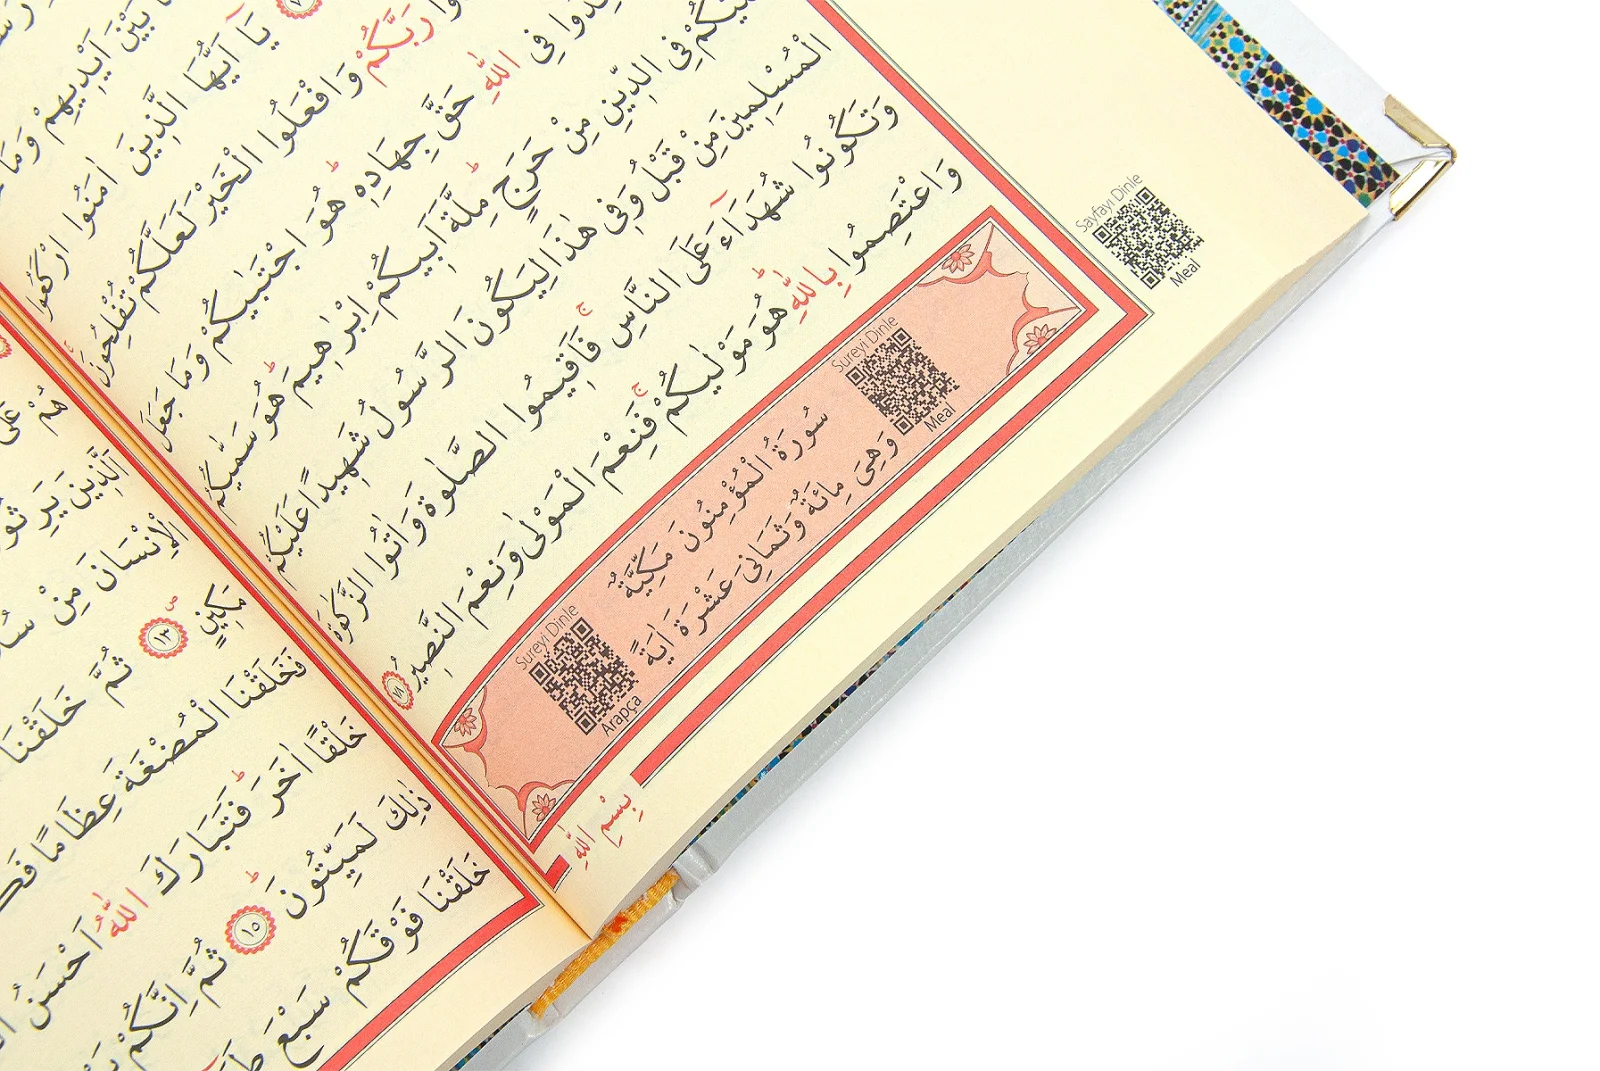 بَيْنَ اَيْدِيهِمْ وَمَا
يَٓا اَيُّهَا الَّذِينَ اٰمَنُوا ارْكَعُوا
رَبَّكُمْ وَافْعَلُوا الْخَيْرَ لَعَلَّكُمْ تُفْلِحُونَ
فِي اللّٰهِ حَقَّ جِهَادِهِۜ هُوَ اجْتَبٰيكُمْ وَمَا جَعَلَ
عَلَيْكُمْ فِي الدِّينِ مِنْ حَرَجٍۜ مِلَّةَ اَبِيكُمْ اِبْرٰهِيمَۜ هُوَ سَمّٰيكُمُ
الْمُسْلِمِينَ مِنْ قَبْلُ وَفِي هٰذَا لِيَكُونَ الرَّسُولُ شَهِيدًا عَلَيْكُمْ
وَتَكُونُوا شُهَدَٓاءَ عَلَى النَّاسِۚ فَاَقِيمُوا الصَّلٰوةَ وَاٰتُوا الزَّكٰوةَ
وَاعْتَصِمُوا بِاللّٰهِۜ هُوَ مَوْلٰيكُمْۚ فَنِعْمَ الْمَوْلٰى وَنِعْمَ النَّصِيرُ ٧٨
سُورَةُ الْمُؤْمِنُونَ مَكِّيَّةٌ
وَهِيَ مِائَةٌ وَثَمَانِيَ عَشْرَةَ اٰيَةً
Sureyi Dinle
Meal
Sureyi Dinle
Arapça
Sayfayı Dinle
Meal
بِسْمِ اللّٰهِ
هُمْ عَلٰى
الَّذِينَ يَرِثُونَ
الْاِنْسَانَ مِنْ
مَكِينٍ ١٣ ثُمَّ خَلَقْنَا
فَخَلَقْنَا الْمُضْغَةَ عِظَامًا
خَلْقًا اٰخَرَۜ فَتَبَارَكَ اللّٰهُ اَحْسَنُ
ذٰلِكَ لَمَيِّتُونَۜ ١٥ ثُمَّ اِنَّكُمْ
خَلَقْنَا فَوْقَكُمْ سَبْعَ